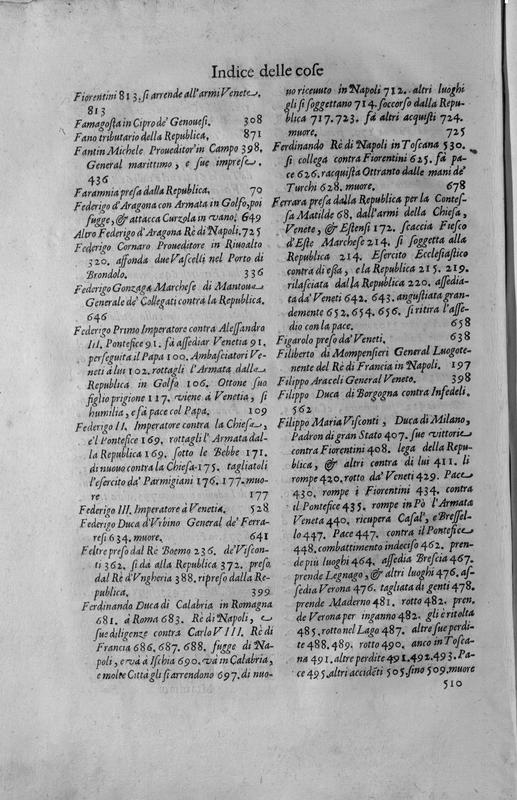 Indice delle coſe
Fiorentini 813. ſi arrende all'armi Venete.
813
Famagoſta in Cipro de' Genoueſi. 308
Fano tributario della Republica. 871
Fantin Michele Proueditor' in Campo 398.
General marittimo, e ſue impreſe.
436
Faramnia preſa dalla Republica. 70
Federigo d'Aragona con Armata in Golfo, poi
fugge, & attacca Curzola in vano. 649
Altro Federigo d'Aragona Rè di Napoli. 725
Federigo Cornaro Proueditore in Riuoalto
320. affonda due Vaſcelli nel Porto di
Brondolo. 336
Federigo Gonzaga Marcheſe di Mantoua
Generale de' Collegati contra la Republica.
646
Federigo Primo Imperatore contra Aleſſandro
III. Pontefice 91. fà aſſediar Venetia 91.
perſeguita il Papa 100. Ambaſciatori Ve-
neti à lui 102. rottagli l'Armata dalla
Republica in Golfo 106. Ottone ſuo
figlio prigione 117. viene à Venetia, ſi
humilia, e fà pace col Papa. 109
Federigo II. Imperatore contro la Chieſa,
e'l Pontefice 169. rottagli l'Armata dal-
la Republica 169. ſotto le Bebbe 171.
di nuouo contra la Chieſa 175. tagliatoli
l'eſercito da' Parmigiani 176. 177. muo-
re 177
Federigo III. Imperatore à Venetia. 528
Federigo Duca d'Vrbino General de' Ferra-
reſi 634. muore. 641
Feltre preſo dal Rè Boemo 236. de' Viſcon-
ti 362. ſi dà alla Republica 372. preſo
dal Rè d'Vngheria 388. ripreſo dalla Re-
publica. 399
Ferdinando Duca di Calabria in Romagna
681. à Roma 683. Rè di Napoli, e
ſue diligenze contro Carlo VIII. Rè di
Francia 686. 687. 688. fugge di Na-
poli, e và à Iſchia 690. và in Calabria,
e molte Città gli ſi arrendono 697. di nuo-
uo riceuuto in Napoli 712. altri luoghi
gli ſi ſoggettano 714. ſoccorſo dalla Repu-
blica 717. 723. fà altri acquiſti 724.
muore. 725
Ferdinando Rè di Napoli in Toſcana 530.
ſi collega contra Fiorentini 625. fà pa-
ce 626. racquiſta Ottranto dalle mani de'
Turchi 628. muore. 678
Ferrara preſa dalla Republica per la Conteſ-
ſa Matilde 68. dall'armi della Chieſa,
Venete, & Eſtenſi 172. ſcaccia Fieſco
d'Eſte Marcheſe 214. ſi ſoggetta alla
Republica 214. Eſercito Eccleſiaſtico
contra di eſſa, e la Republica 215. 219.
rilaſciata dalla Republica 220. aſſedia-
ta da' Veneti 642. 643. anguſtiata gran-
demente 652. 654. 656. ſi ritira l'aſſe-
dio con la pace. 658
Figarolo preſo da' Veneti. 638
Filiberto di Mompenſieri General Luogote-
nente del Rè di Francia in Napoli. 197
Filippo Araceli General Veneto. 398
Filippo Duca di Borgogna contro Infedeli.
562
Filippo Maria Viſconti, Duca di Milano,
Padron di gran Stato 407. ſue vittorie
contra Fiorentini 408. lega della Repu-
blica, & altri contra di lui 411. li
rompe 420. rotto da' Veneti 429. Pace
430. rompe i Fiorentini 434. contra
il Pontefice 435. rompe in Pò l'Armata
Veneta 440. ricupera Caſal', e Breſſel-
lo 447. Pace 447. contro il Pontefice
448. combattimento indeciſo 462. pren-
de più luoghi 464. aſſedia Breſcia 467.
prende Legnago, & altri luoghi 476. aſ-
ſedia Verona 476. tagliata di genti 478.
prende Maderno 481. rotto 482. pren-
de Verona per inganno 482. gli è ritolta
485. rotto nel Lago 487. altre ſue perdi-
te 488. 489. rotto 490. anco in Toſca-
na 491. altre perdite 491. 492. 493. Pa-
ce 495. altri accidēti 505. ſino 509. muore
510